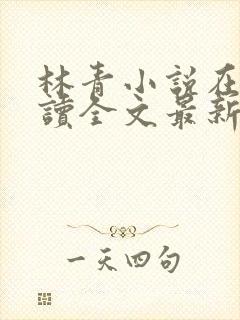 林青小說在
讀全文最新
一天四句